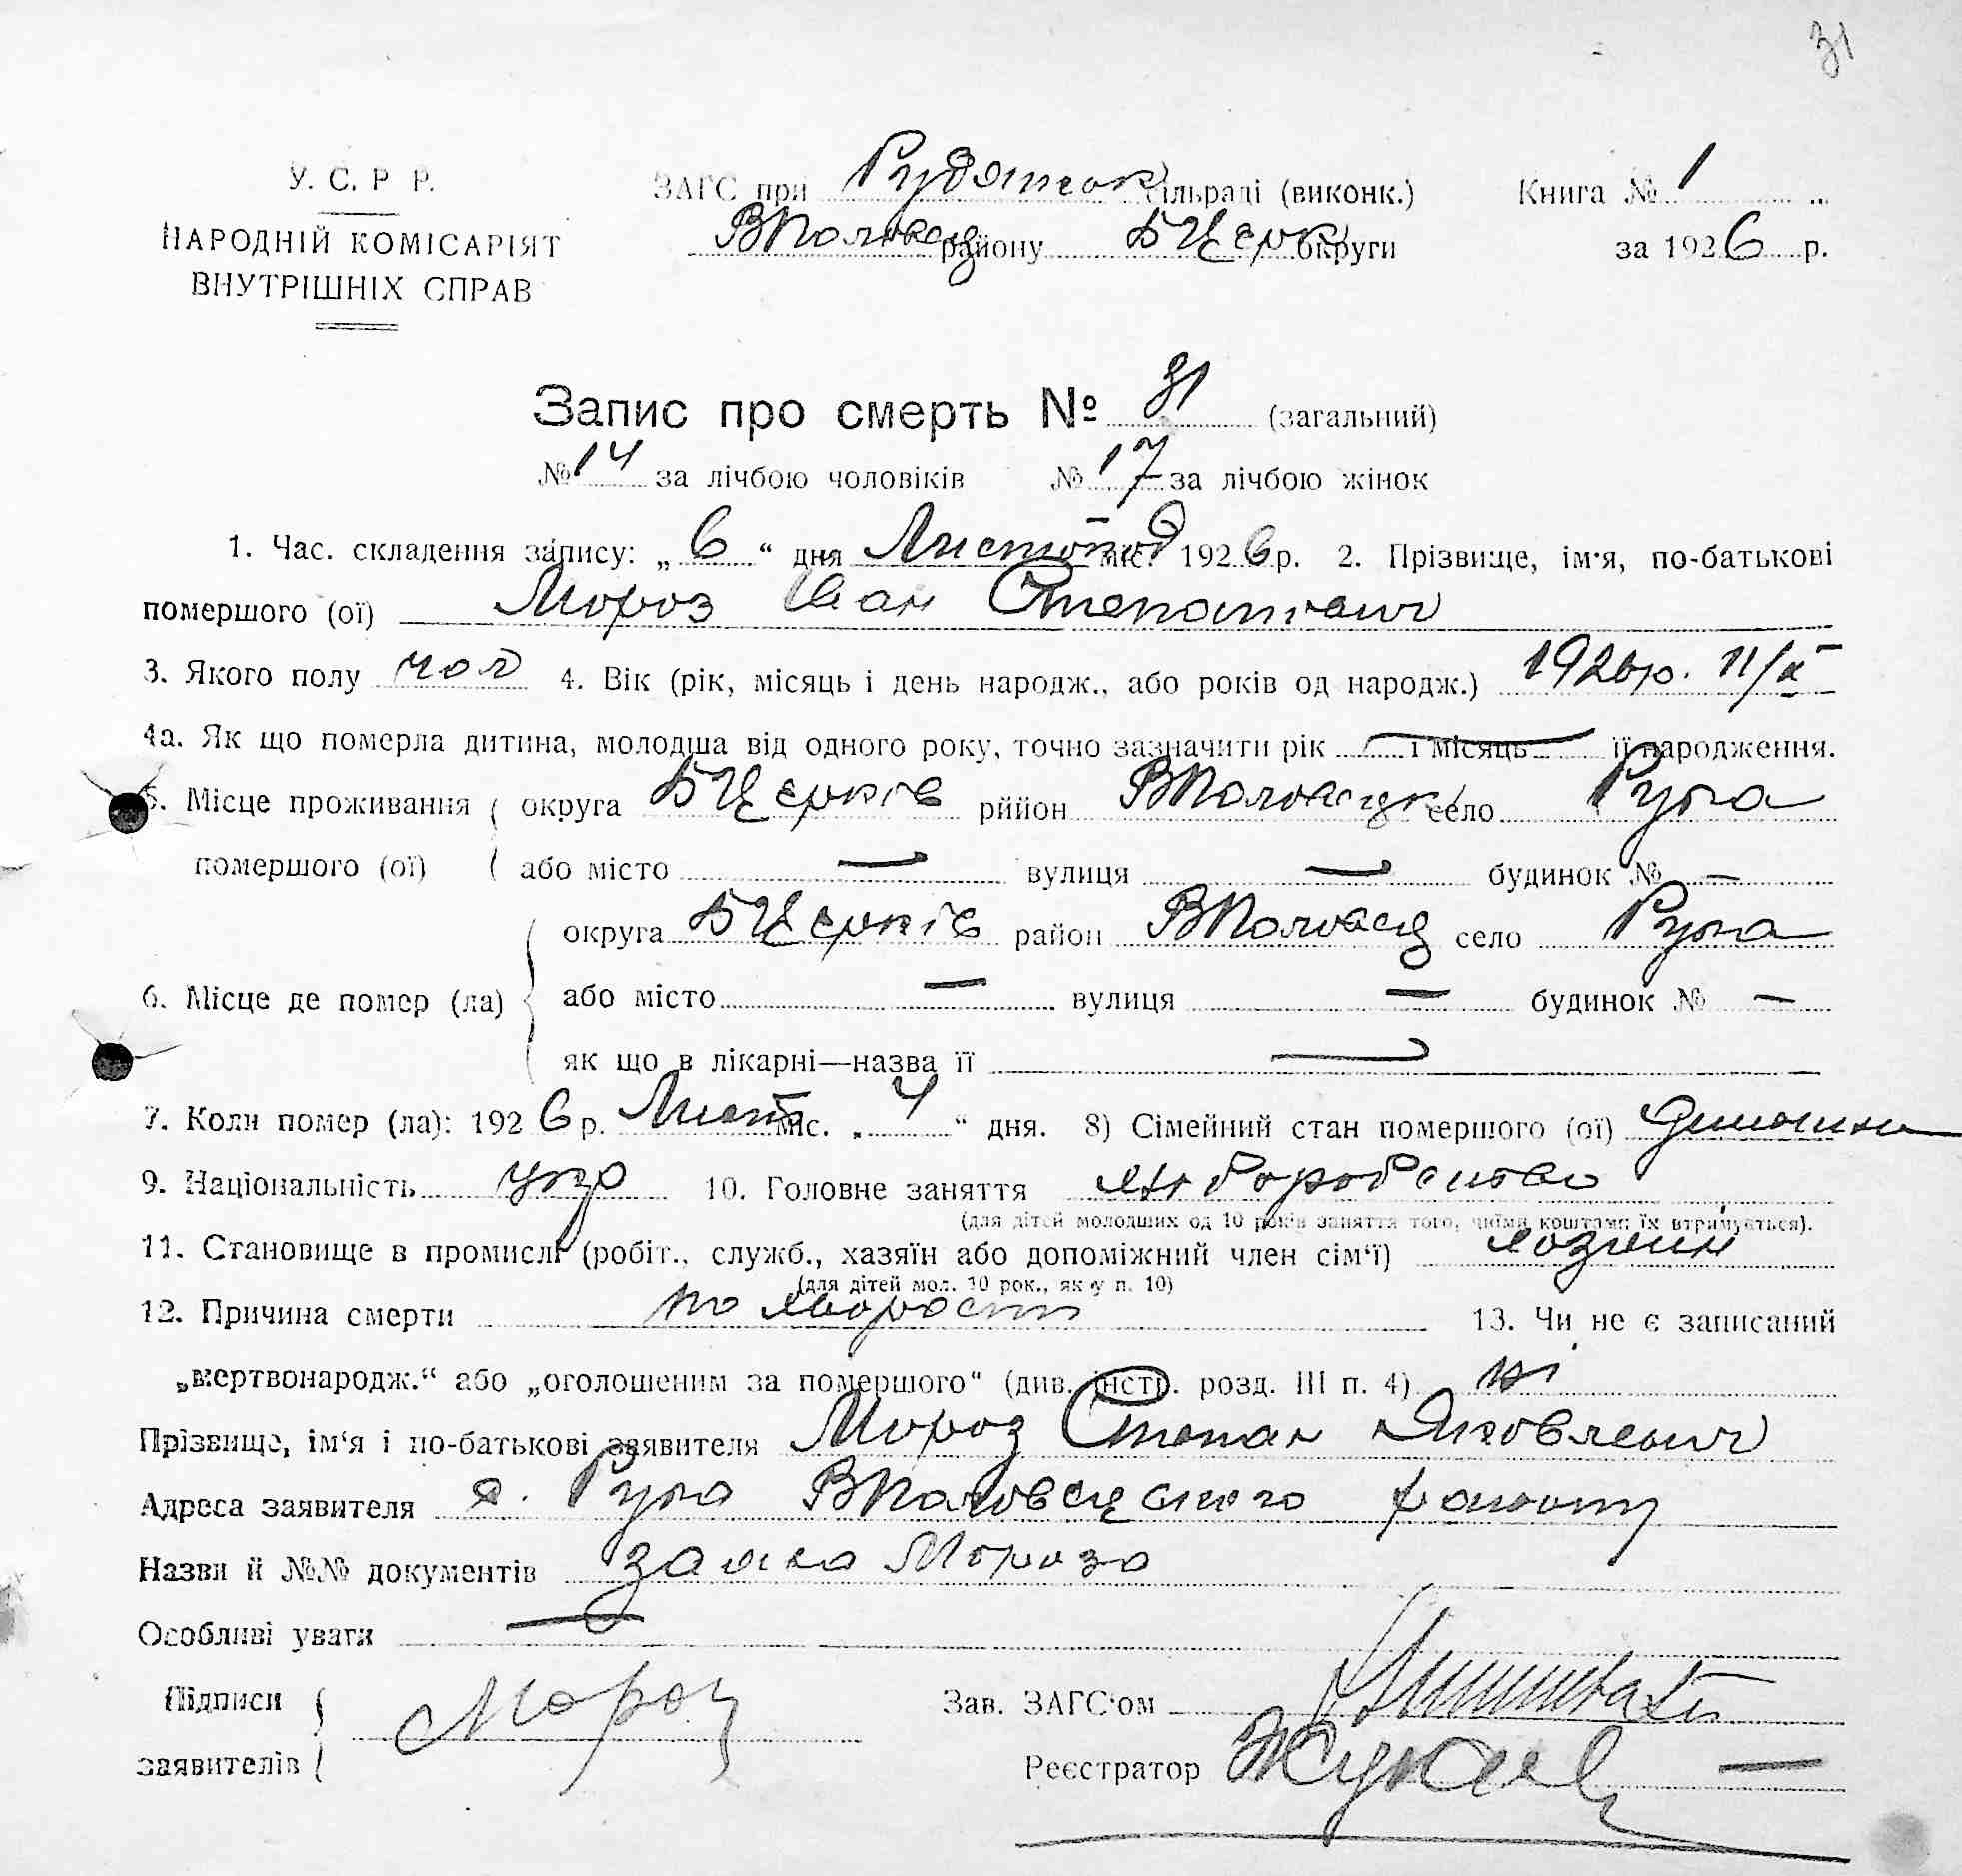 31
У. С. Р Р.
НАРОДНІЙ КОМІСАРІЯТ
ВНУТРІШНІХ СПРАВ
ЗАГС при Рудянськ сільраді (виконк.) Книга № 1
ВПоловец району БЦерк округи за 1926 р.
Запис про смерть № 31 (загальний)
№ 14 за лічбою чоловіків № 17 за лічбою жінок
1. Час. складення запису: „ 6 “ дня Листопод міс. 1926 р. 2. Прізвище, ім'я, по-батькові
помершого (ої) Мороз Іван Степанович
3. Якого полу чол 4. Вік (рік, місяць і день народж., або років од народж.) 1926р. 11/X
4а. Як що померла дитина, молодша від одного року, точно зазначити рік — і місяць — її народження.
5. Місце проживання ( округа БЦерків рййон ВПоловецьк село Руда
помершого (ої) ( або місто — вулиця — будинок № —
округа БЦерків район ВПоловец село Руда
6. Місце де помер (ла) { або місто — вулиця — будинок № —
як що в лікарні—назва її —
7. Коли помер (ла): 1926 р. Лист міс. „ 4 “ дня. 8) Сімейний стан помершого (ої)
9. Національність укр 10. Головне заняття хлборобство
(для дітей молодших од 10 років заняття того, чиїми коштами їх втримується).
11. Становище в промислі (робіт., служб., хазяїн або допоміжний член сім‘ї) хозяин
(для дітей мол. 10 рок., як у п. 10)
12. Причина смерти по хворости 13. Чи не є записаний
„мертвонародж.“ або „оголошеним за помершого“ (див. інстр. розд. III п. 4) ні
Прізвище, ім‘я і по-батькові заявителя Мороз Степан Яковлевич
Адреса заявителя с. Руда ВПоловецского району
Назви й №№ документів заява Мороза
Особливі уваги —
Підписи { Мороз Зав. ЗАГС‘ом
заявителів { Реєстратор